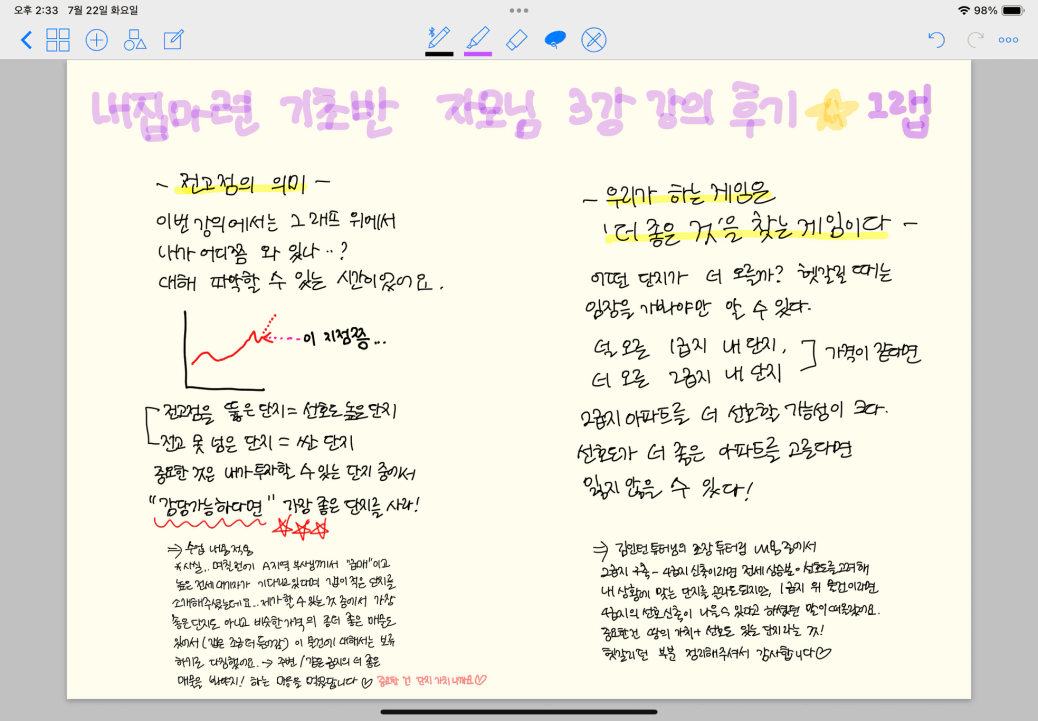 오후 2:33 7월 22일 화요일
98%
내집마련 기초반 자모님 3강 강의 후기 그랩
- 전고점의 의미 -
이번 강의에서는 그래프 위에서
내가 어디쯤 와 있나..?
대해 파악할 수 있는 시간이었어요.
이 지점쯤...
전고점을 뚫은 단지 = 선호도 높은 단지
전고 못 넘은 단지 = 싼 단지
중요한 것은 내가 투자할 수 있는 단지 중에서
"감당가능하다면" 가장 좋은 단지를 사라!
⇒ 수업 내용 적용
*사실.. 며칠전에 A지역 부사님께서 "급매"이고
높은 전세 대기자가 기다리고 있다며 갭이 적은 단지를
소개해주셨는데요.. 제가 할 수 있는 것 중에서 가장
좋은 단지도 아니고 비슷한 가격의 좀더 좋은 매물도
있어서 (갭은 조금 더 들어감) 이 물건에 대해서는 보류
하기로 다짐했어요. → 주변 / 같은 급지의 더 좋은
매물을 봐야지! 하는 마음을 먹었답니다 ♡ 중요한 건 단지 가치니까요 ♡
- 우리가 하는 게임은
'더 좋은 것'을 찾는 게임이다 -
어떤 단지가 더 오를까? 헷갈릴 때는
임장을 가봐야만 알 수 있다.
덜 오른 1급지 내 단지,
더 오른 2급지 내 단지
가격이 같다면
2급지 아파트를 더 선호할 가능성이 크다.
선호도가 더 좋은 아파트를 고른다면
잃지 않을 수 있다!
⇒ 김인턴 튜터님의 조장 튜터링 내용 중에서
2급지 구축 - 4급지 신축이라면 전세상승분이 선호도를 고려해
내 상황에 맞는 단지를 골라도되지만, 1급지 위 물건이라면
4급지의 선호신축이 나을 수 있다고 하셨던 말이 떠올랐어요.
중요한건 땅의 가치 + 선호도 있는 단지라는 것!
헷갈리던 부분 정리해주셔서 감사합니다♡